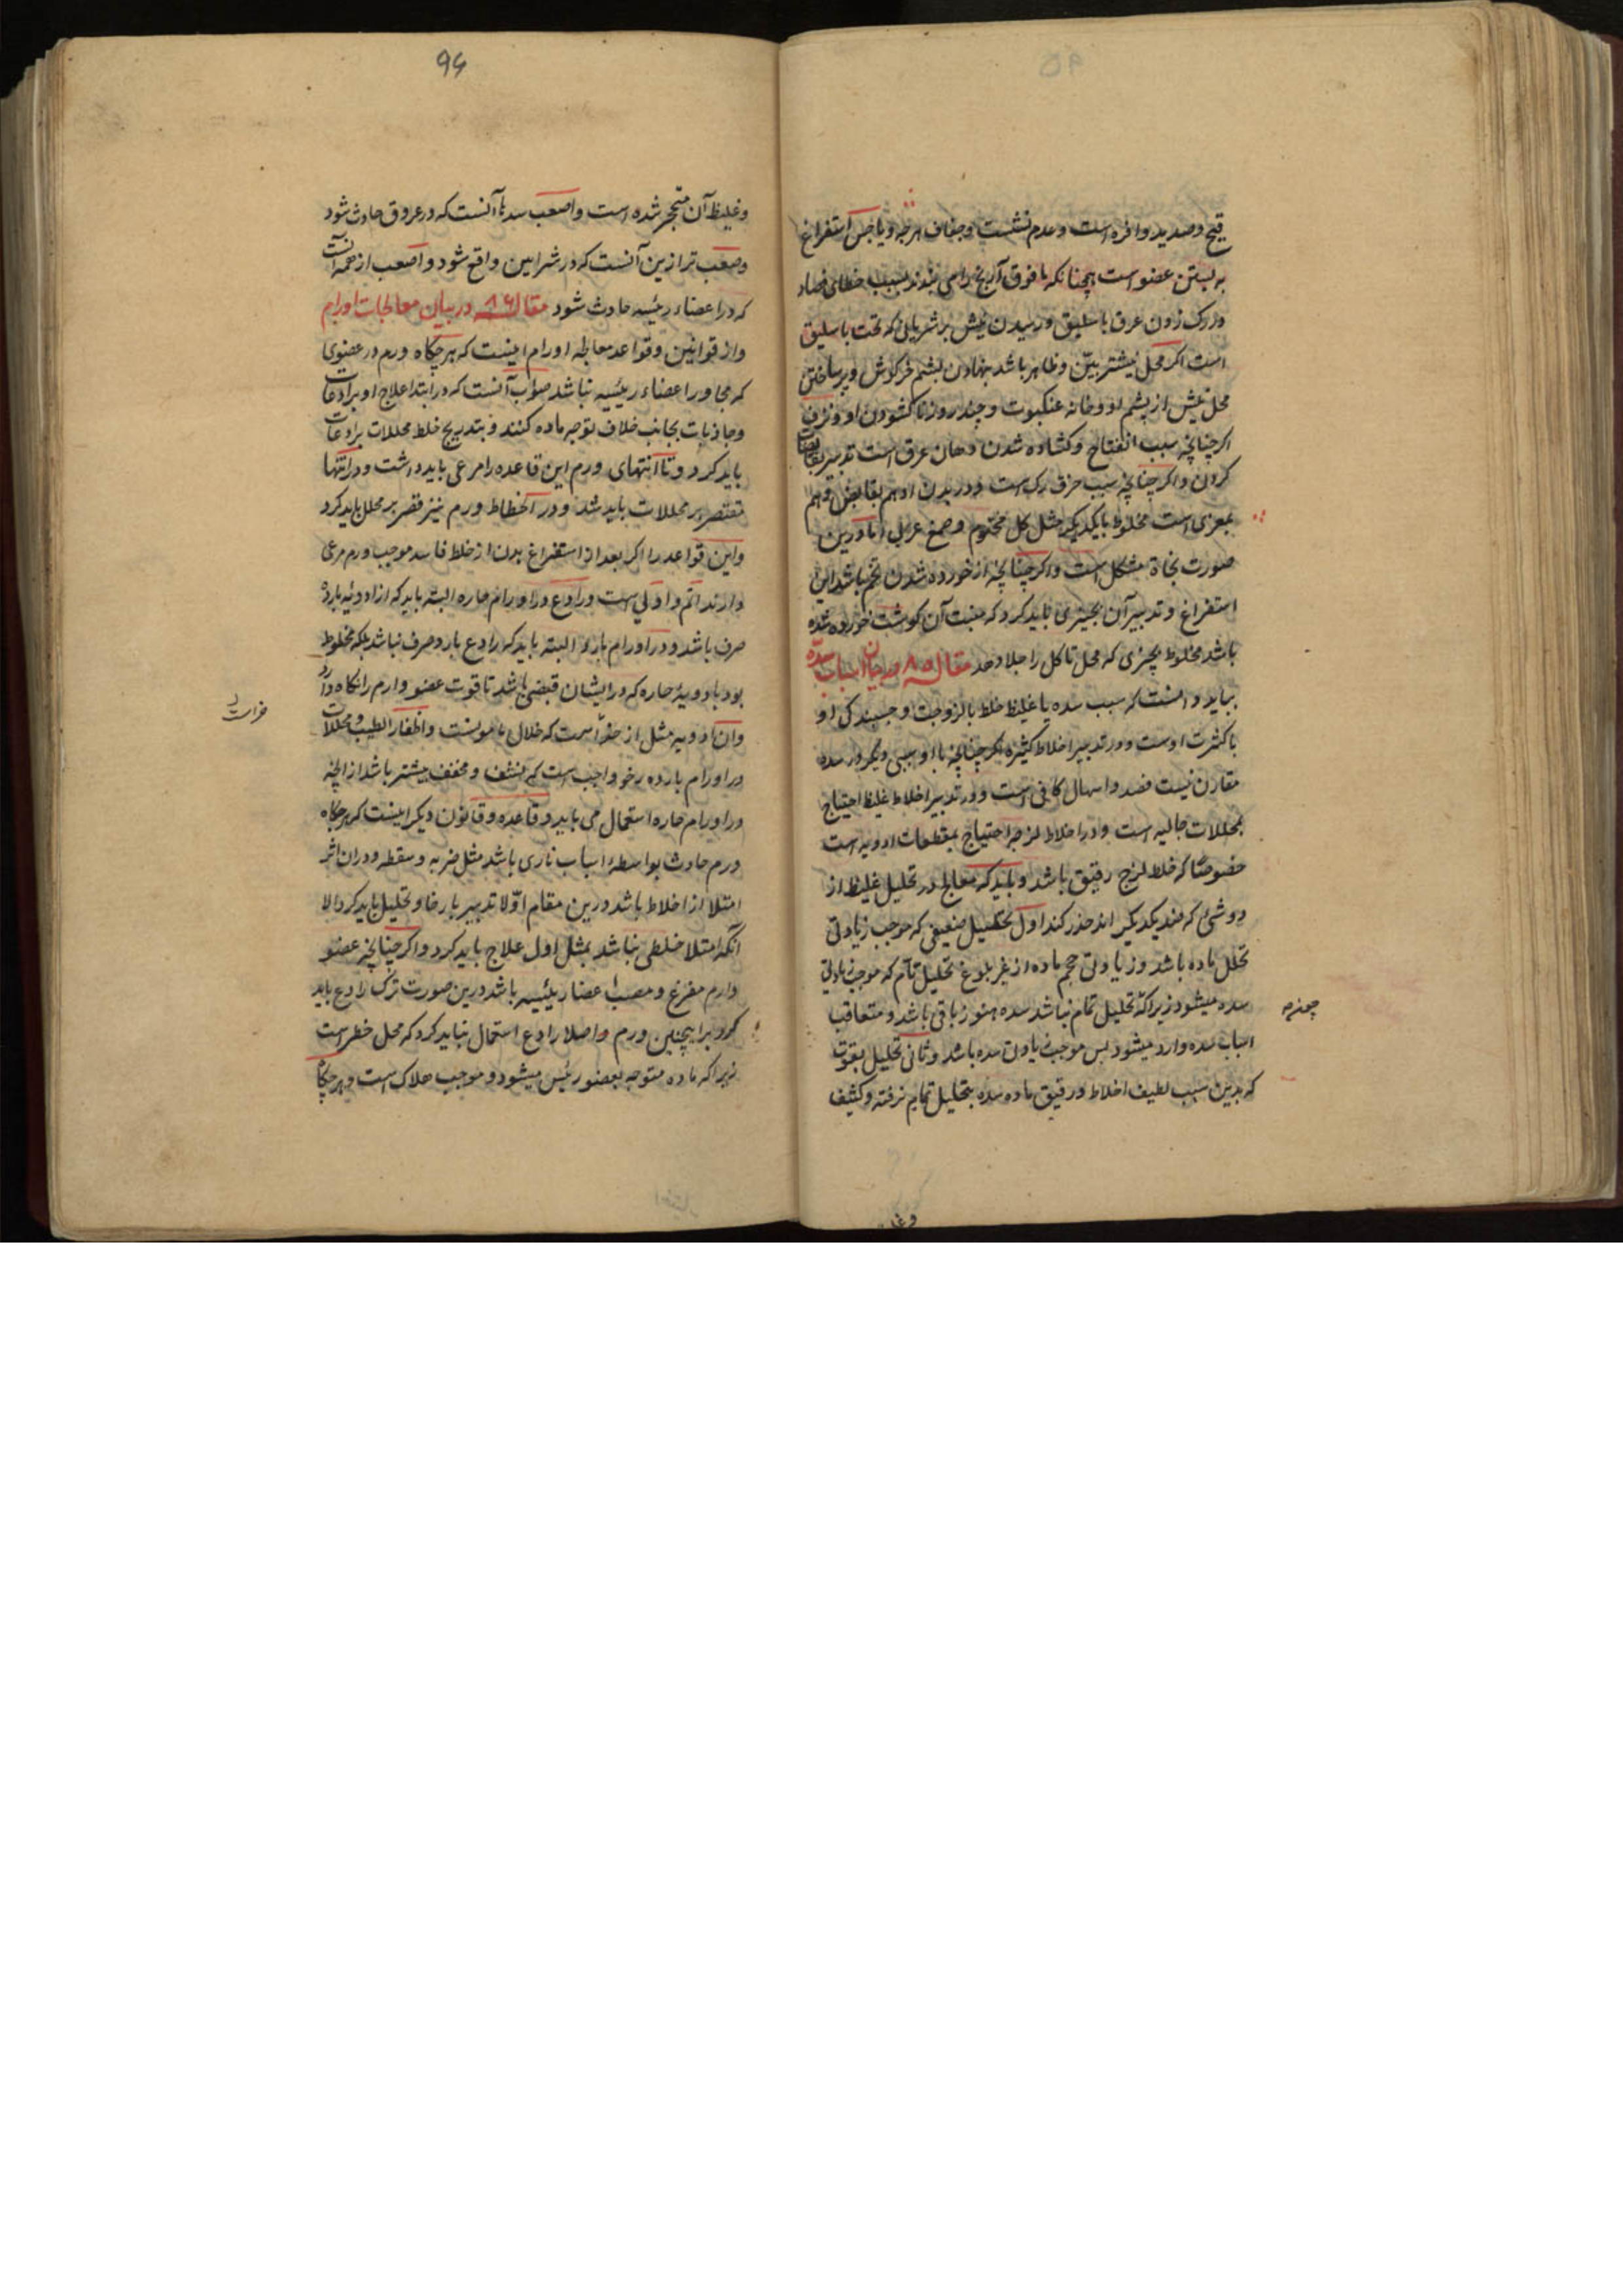 قیح و صدید وافره است و عدم نشست و جفاف هر جه و یا حبس استفراغ
به بستن عضو است همچنانکه مافوق آن یخ را می بندند بسبب خطای فصاد
در رک زدن عرق باسلیق و رسیدن نیش بر شریانی که تحت باسلیق
است اکر محل نیشتر بیّن و ظاهر باشد بنهادن پشم خرکوش و پر ساختن
محل نیش از پشم او و خانه عنکبوت و چند روز ناکشودن او و نزف
اکر چنانچه سبب انفتاح و کشاده شدن دهان عرق است تدبیر بقابضات
کردن و اکر چنانچه سبب خرق رک است و در بدن او هم بقابض و هم
بمغری است مخلوط بایکدیکر مثل کل مختوم و صمغ عربی اما درین
صورت نجاة مشکل است و اکر چنانچه از خورده شدن لحم باشد این
استفراغ و تدبیر آن بچیزی باید کرد که منبت آن کوشت خورده شده
باشد مخلوط بچیزی که محل تاکل را جلا دهد مقاله ۸۵ در بیان اسباب سدّه
بباید دانست که سبب سده یا غلیظ خلط یا لزوجت و چسبندکی او
یا کثرت اوست و در تدبیر اخلاط کثیره اکر چنانچه با او سببی دیکر در سده
مقارن نیست فصد و اسهال کافی است و در تدبیر اخلاط غلیظ احتیاج
بمحللات جالیه است و در اخلاط لزجه احتیاج بمقطعات ادویه است
خصوصًا که خلط لزج رقیق باشد و باید که معالج در تحلیل غلیظ از
دو شیٔ که ضد یکدیکر اند حذر کند اول تحلیل ضعیفی که موجب زیادتی
تحلل ماده باشد و زیادتی حجم ماده از غیر بلوغ تحلیل تام که موجب زیادتی
سده میشود زیرا که تحلیل تمام نباشد سده هنوز باقی باشد و متعاقب
اسباب سده وارد میشود پس موجب زیادتی سده باشد و ثانی تحلیل بقوت
که بدین سبب لطیف اخلاط و رقیق ماده سده بتحلیل تمام نرفته و کثیف
96
و غلیظ آن متحجر شده است و اصعب سدها آنست که در عروق حادث شود
و صعب تر ازین آنست که در شرایین واقع شود و اصعب از همه آنست
که در اعضاء رئیسه حادث شود مقاله ۸۶ در بیان معالجات اورام
و از قوانین و قواعد معالجه اورام اینست که هر چکاه ورم در عضوی
که مجاور اعضاء رئیسه نباشد صواب آنست که در ابتدا علاج او برادعات
و جاذبات بجانب خلاف توجه ماده کنند و بتدریج خلط محللات برادعات
باید کرد و تا انتهای ورم این قاعده را مرعی باید داشت و در انتها
مقتصر بر محللات باید شد و در انحطاط ورم نیز قصر بر محلل باید کرد
و این قواعد را اکر بعد از استفراغ بدن از خلط فاسد موجب ورم مرعی
دارند اتم و اولی است و رادع در اورام حاره البته باید که از ادویهٔ بارده
صرف باشد و در اورام بارد البته باید که رادع بارد صرف نباشد بلکه مخلوط
بود بادویهٔ حاره که در ایشان قبضی باشد تا قوت عضو وارم را نکاه دارد
و آن ادویه مثل اذخر است که خلال مامونست و اظفار الطیب و محللات
در اورام بارده رخو واجب است که منشف و مجفف بیشتر باشد از انچه
در اورام حاره استعمال می یابید و قاعده و قانون دیکر اینست که هر چکاه
ورم حادث بواسطهٔ اسباب نادی باشد مثل ضربه و سقطه و در آن اثر
امتلا از اخلاط باشد درین مقام اوّلا تدبیر بارخا و تحلیل باید کرد الا
آنکه امتلا خلطی نباشد بمثل اول علاج باید کرد و اکر چنانچه عضو
وارم مفرغ و مصب اعضا رئیسیه باشد درین صورت ترک رادع باید
کرد بر اینچنین ورم و اصلا رادع استعمال نباید کرد که محل خطر است
زیرا که ماده متوجه بعضو رئیس میشود و موجب هلاک است و هر چکاه